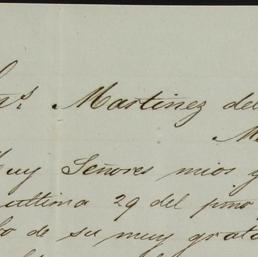 Martinez del
Muy Señores mios y
ultima 29 del pmo
de su muy grata